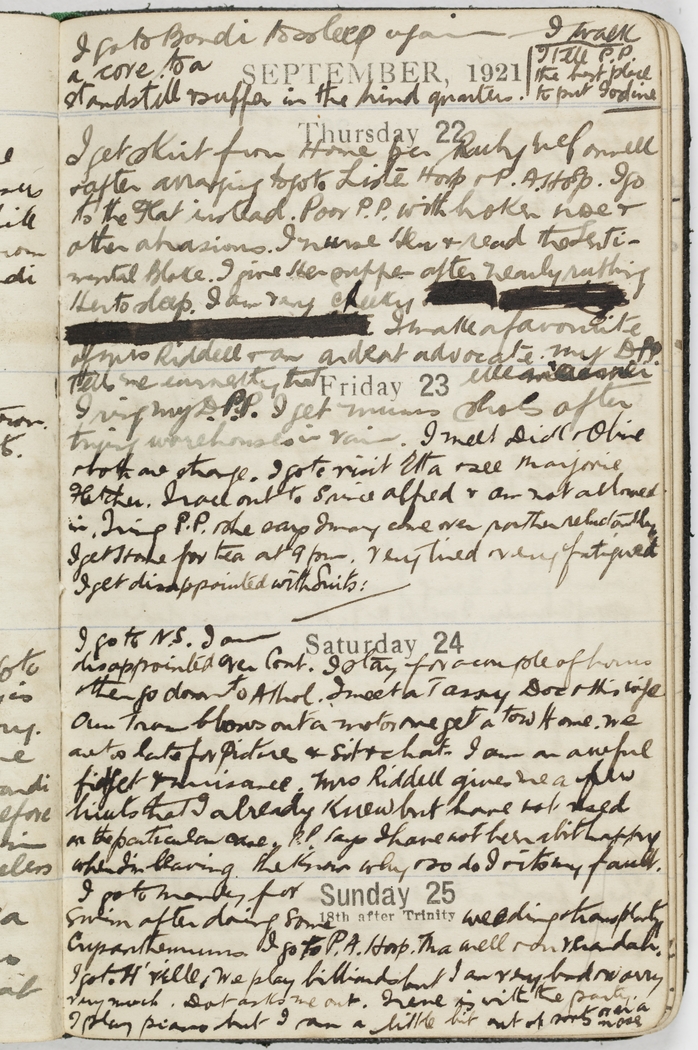 I go to Bondi to sleep again — I walk
a core to a
SEPTEMBER, 1921
I tell P.P.
the best place
to put Iodine
standstill & suffer in the hind quarters.
Thursday 22
I get skirt from Home for Ruby McConnell
& after arranging to go to Lister Hosp & P.A. Hosp. I go
to the Flat instead. Poor P.P. with broken nose &
other abrasions. I nurse Her & read the Senti-
mental Bloke. I give Her supper after nearly rubbing
Her to sleep. I am very cheeky
I make a favourite
of Mrs Riddell & am a great advocate. My D.P.P.
tells me earnestly that
Friday 23
I ring my D.P.P. I get mums shoes after
trying warehouses in rain. I meet Dick & Olive
& both are strange. I go to visit Etta & see Marjorie
Fletcher. I race out to Prince Alfred & am not allowed
in. I ring P.P. & she says I may come over rather reluctantly
I get Home for tea at 9 pm. very tired & very fatigued
I get disappointed with Suits:
I go to N.S. I am
Saturday 24
disappointed over Cont. I stay for a couple of hours
& then go down to Athol. I meet a Tassy Doc & His wife
Our Tram blows out a motor we get a tow Home. We
are too late for Pictures & sit & chat. I am an awful
fidget & nuisance. Mrs Riddell gives me a few
hints that I already knew but have not used
in the particular case. P.P. says I have not been a bit happy
when I'm leaving. She knows why & so do I & its my fault.
I go to Manly for
Sunday 25
18th after Trinity
swim after doing some weeding & transplanting
I go to P.A. Hosp. Tha well & on verandah.
I go to H'ville, we play billiards but I am very bad & worry
very much. Dot asks me out. Irene is with the party.
I play piano but I am a little bit out of sorts over a
nose